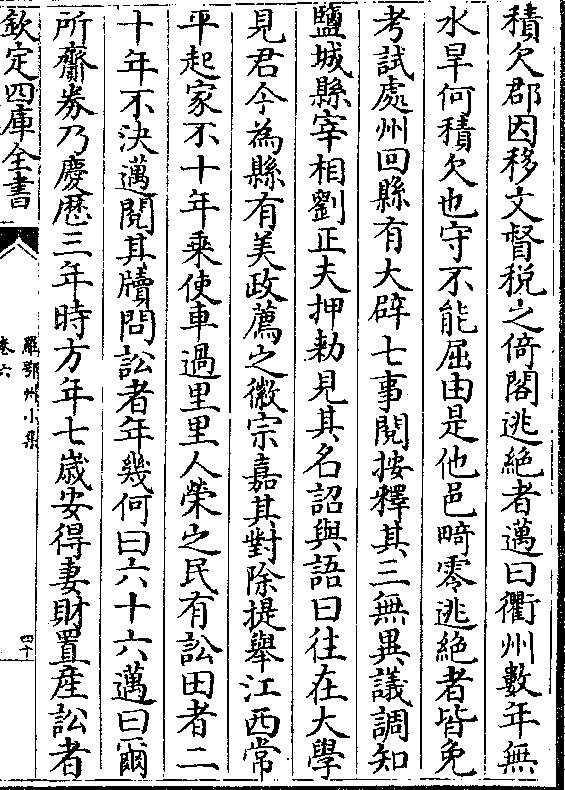 積欠郡因移文督税之倚閣逃絶者邁曰衢州數年無
水旱何積欠也守不能屈由是他邑畸零逃絶者皆免
考試處州回縣有大辟七事閱按釋其三無異議調知
鹽城縣宰相劉正夫押勅見其名詔與語曰往在大學
見君今為縣有美政薦之徽宗嘉其對除提舉江西常
平起家不十年乗使車過里里人榮之民有訟田者二
十年不決邁閱其牘問訟者年幾何曰六十六邁曰爾
所齎券乃慶歴三年時方年七歳安得妻財置産訟者
欽定四庫全書
羅鄂州小集
卷六
四十